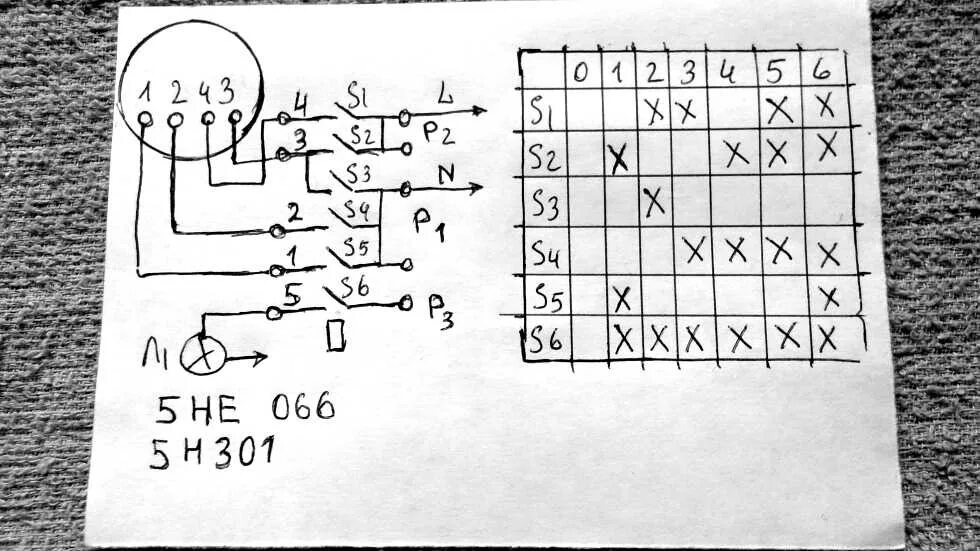 1 2 4 3
4 S1 L
P2
3 S2
S3 N
2 S4 P1
1 S5
5 S6 P3
Л1
5HE 066
5H301
0 1 2 3 4 5 6
S1 X X X X
S2 X X X X
S3 X
S4 X X X X
S5 X X
S6 X X X X X X